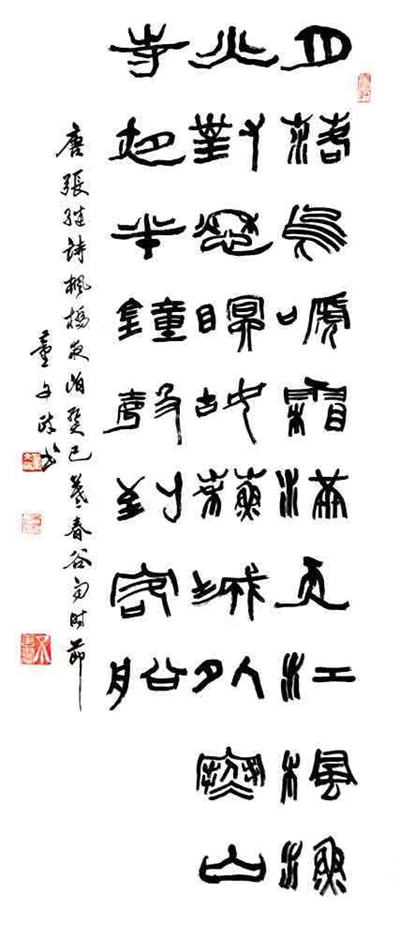 月落烏嗁霜滿天江楓漁
火對愁眠姑蘇城外寒山
寺夜半鐘聲到客船
唐張繼詩楓橋夜泊癸巳暮春谷雨時節
董文